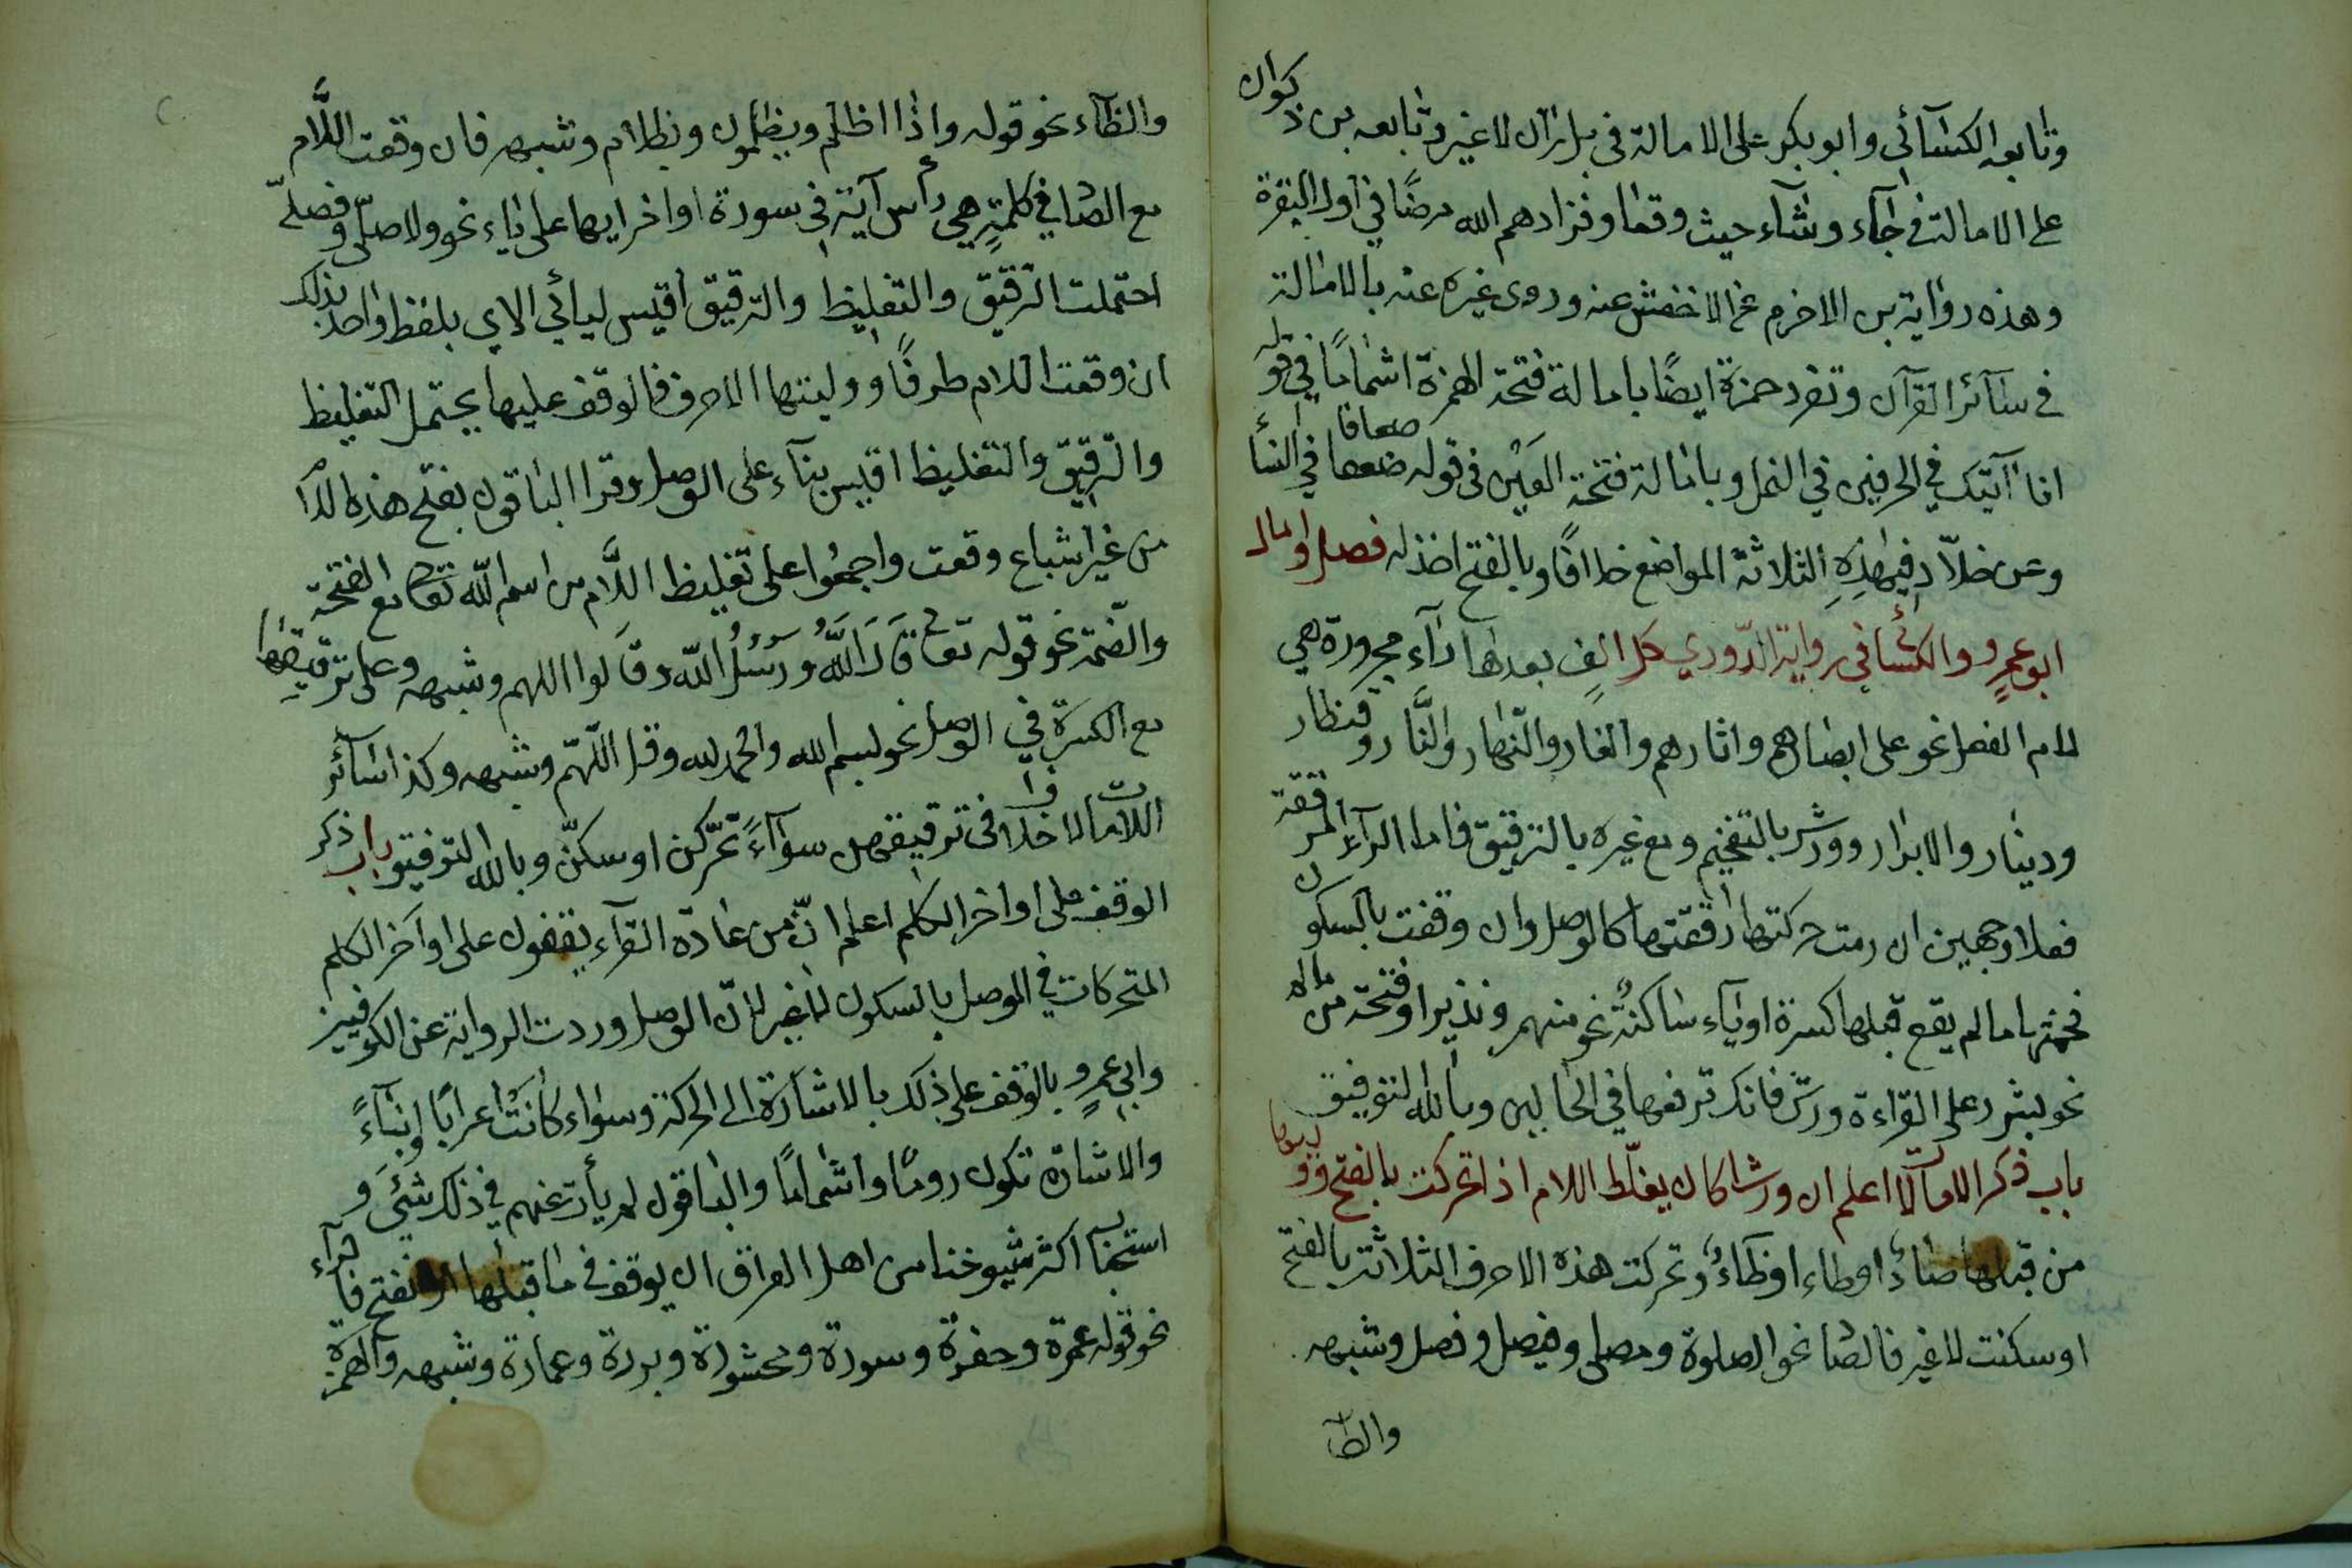 وتابعه الكسآئى وابوبكر على الامالة فى بل ران لاغير وتابعه بن ذكوان
على الامالة فى جآء وشآء حيث وقعا وفزادهم الله مرضًا في اول البقرة
وهذه رواية بن الاخرم عن الاخفش عنه وروى غيره عنه بالامالة
فى سآئر القرآن وتفرد حمزة ايضًا بامالة فتحة الهمزة اشمامًا في قوله
انا آتيك في الحرفين في النمل وبامالة فتحة العين فى قوله ضعافا في النسآ
وعن خلاّد فى هذِهِ الثلاثة المواضع خلافًا وبالفتح اخذ له فصل وامال
ابو عمرٍو والكسائى فى رواية الدّوري كل الفٍ بعدها رآء مجرورة هي
لام الفعل نحو على ابصارهم واثارهم والغار والنّهار والنَّار وقنطار
ودينار والابرار وورش بالتفخيم ومع غيره بالترقيق فاما الرآء المرققة
فعلا وجهين ان رمت حركتها رققتها كالوصل وان وقفت بالسكون
فخمتها ما لم يقع قبلها كسرة اويآء ساكنةٌ نحو منهمر ونذير اوفتحة ممالة
نحو بشرر على القراءة ورش فانك ترفعها في الحالين وبالله التوفيق
باب ذكر اللامات اعلم ان ورشا كان يغلّظ اللام اذا تحركت بالفتح ووليها
من قبلها صادٌ اوطاء اوظاءٌ وتحركت هذه الاحرف الثلاثة بالفتح
اوسكنت لاغير فالصا نحو الصلوة ومصلى وفيصل وفصل وشبهه
والطآ
والظآء نحو قوله واذا اظلم ويظلمون وبظلام وشبهه فان وقعت اللَّام
مع الصا في كلمةٍ هي رأس آية فى سورة اواخر ايها على ياء نحو ولا صلّى وفصلّى
احتملت الترقيق والتغليظ والترقيق اقيس لياتي الاي بلفظ واحد وكذلك
ان وقعت اللام طرفًا ووليتها الاحرف فالوقف عليها يحتمل التغليظ
والترقيق والتغليظ اقيس بنآء على الوصل وقرا الباقون بفتح هذه للام
من غير اشباع وقعت واجمعُوا على تغليظ اللَّام من اسم الله تعالى مع الفتحة
والضّمة نحو قوله تعالى قَالَ اللَّهُ ورُسُلُ اللّه وقَالوا اللهم وشبهه وعلى ترقيقها
مع الكسرة في الوصل نحو لبسم الله والحمد لله وقل اللّهمّ وشبهه وكذا سآئر
اللامات لا خلاف فى ترقيقهن سوآءً تحرّكن اوسكنّ وبالله التوفيق باب ذكر
الوقف على اواخر الكلم اعلم انّ من عادة القرآء يقفون على اواخر الكلم
المتحركات في الوصل بالسكون لاغير لانّ الوصل وردت الرواية عن الكوفيين
وابى عمرٍو بالوقف على ذلك بالاشارة الى الحركة وسواء كانَتْ اعرابًا اوبنآءً
والاشارة تكون رومًا واشمامًا والباقون لم يأت عنهم في ذلك شئَ و
استحبآب اكثر شيوخنا من اهل العراق ان يوقف فى ما قبلها بالفتح فالرآء
نحو قوله عمرة وحفرة وسورة ومحشورة وبررة وعمارة وشبهه والهمزة